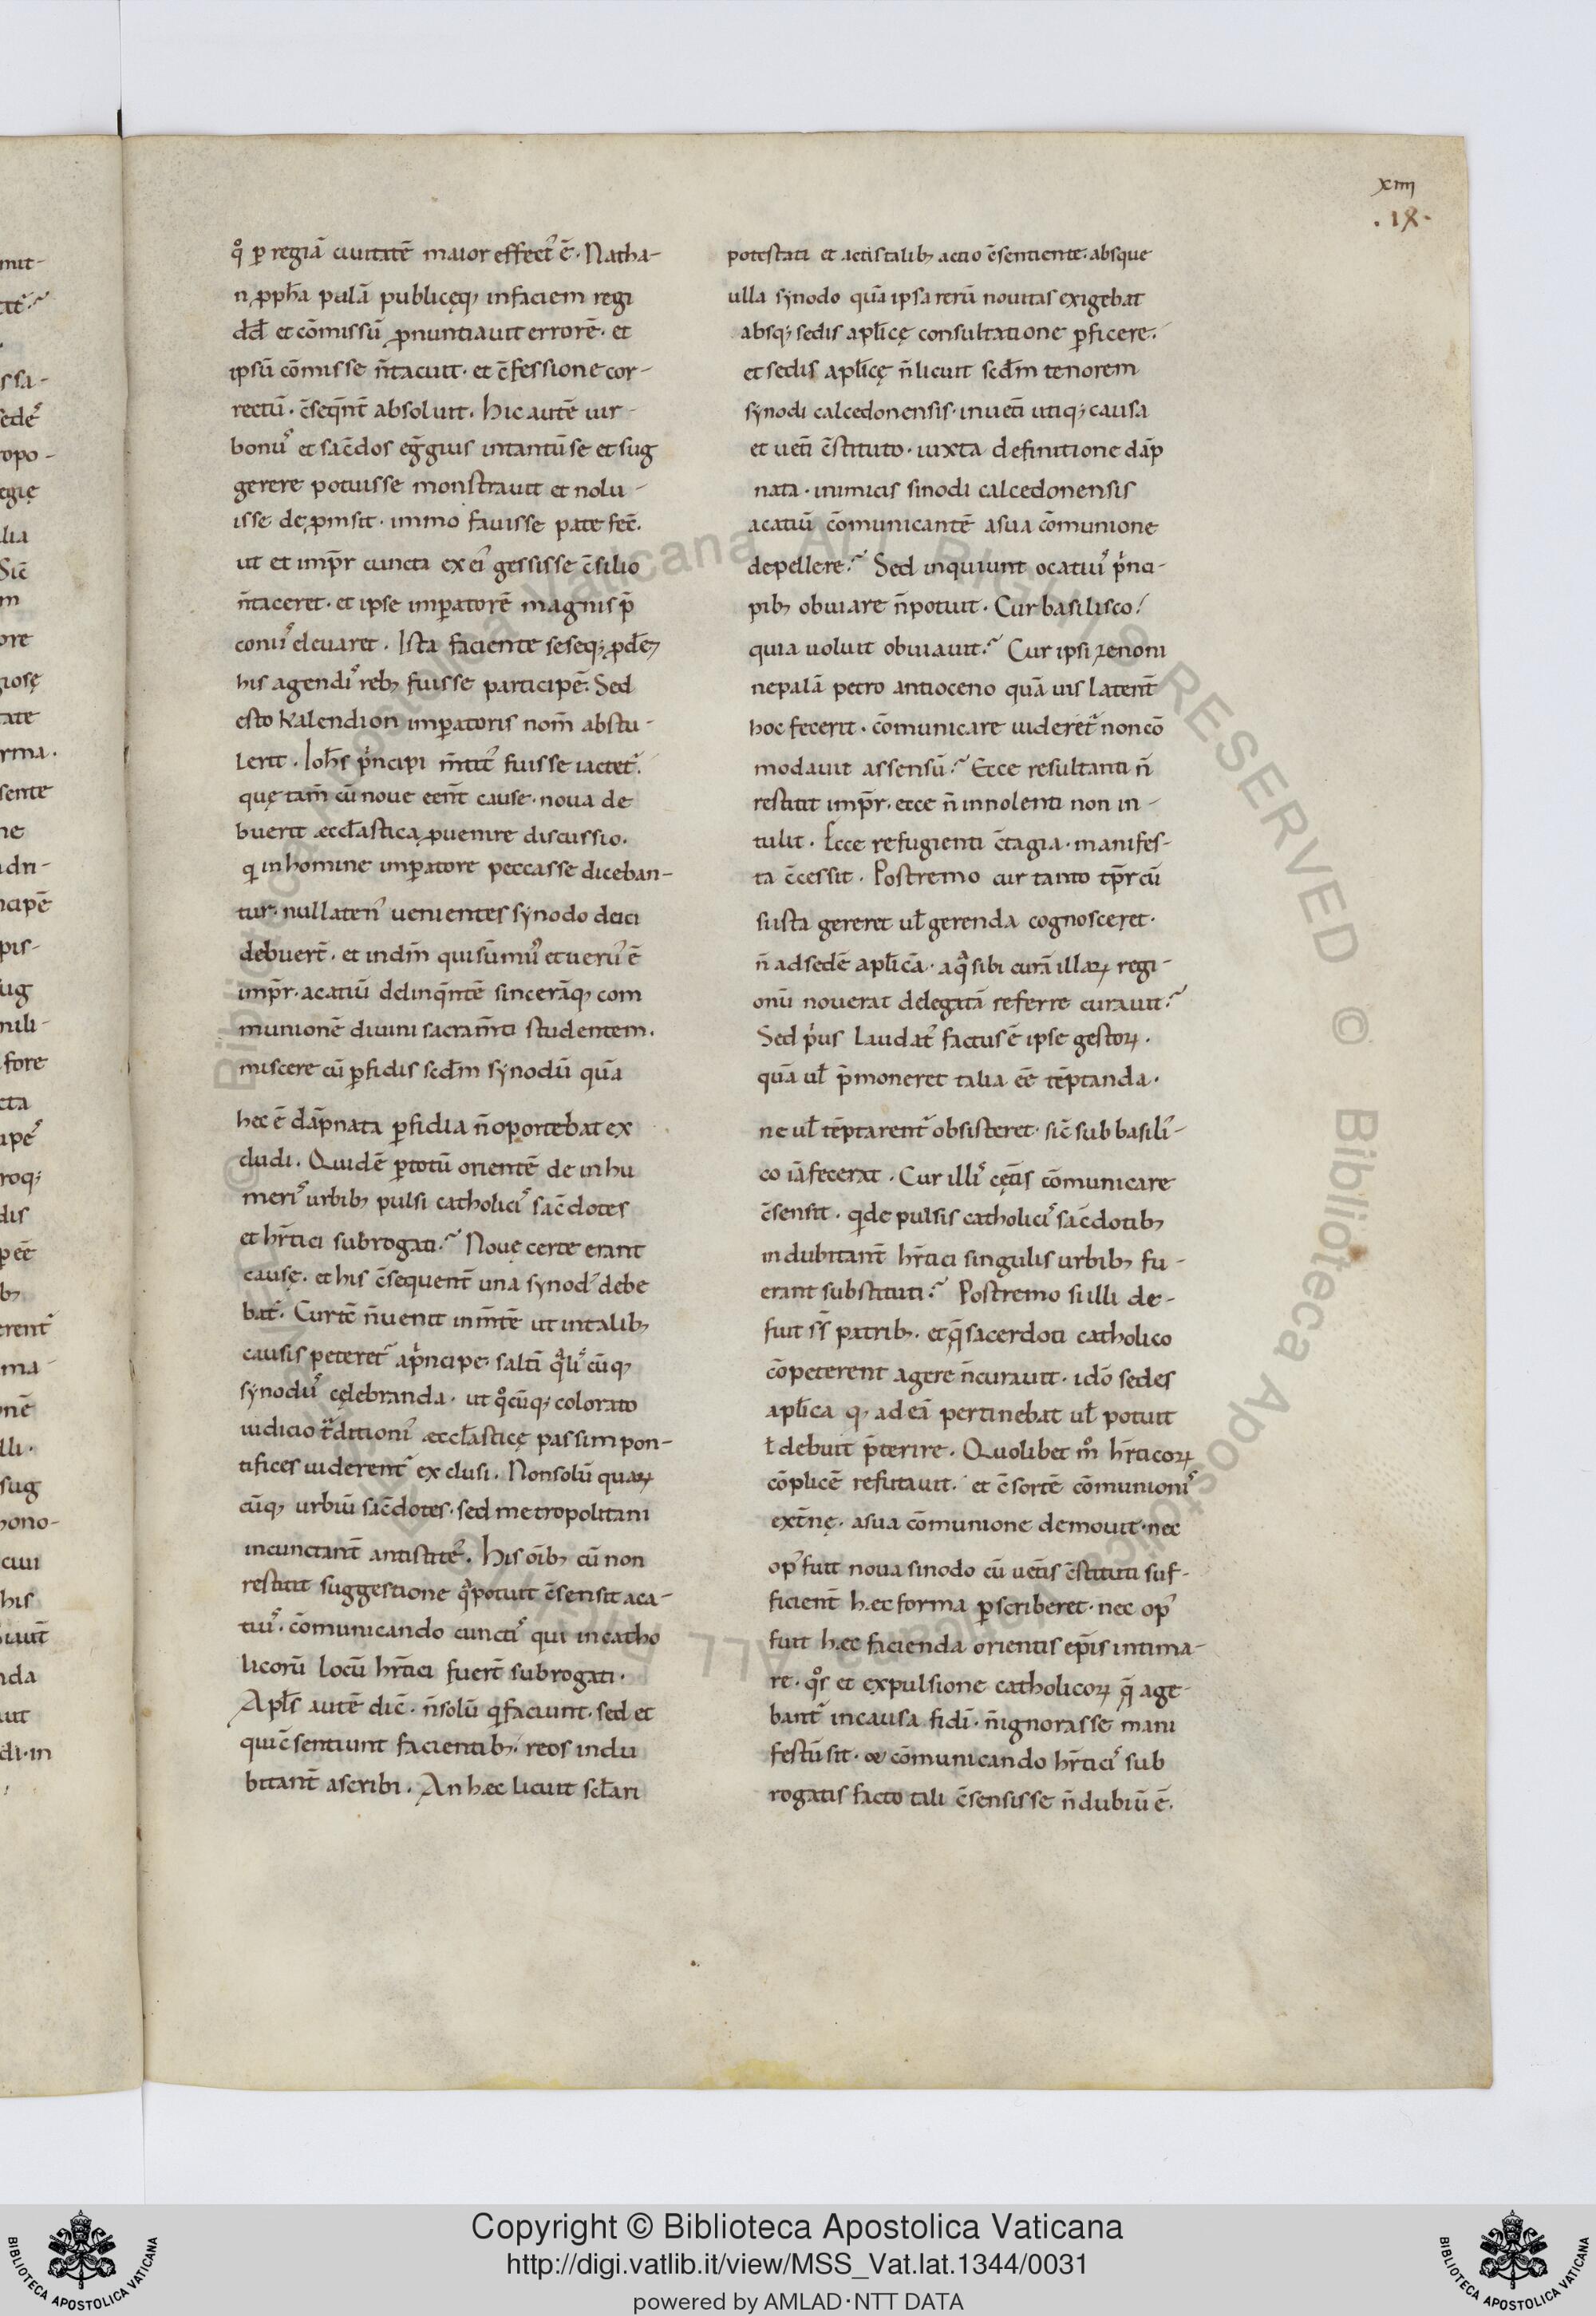 xiiii
.IX.
qͦ ꝑ regiā ciuitatē maior effectꝰ ē. Natha-
n ꝓph̄a palā publicęq; infaciem regi
dd̄ et cōmissū ꝓnuntiauit errorē. et
ipsū cōmisse n̄tacuit. et c̄fessione cor-
rectū. c̄seq̄nt̄ absoluit. Hic autē uir-
bonuˢ et sac̄dos eḡgius intantūse et sug
gerere potuisse monstrauit et nolu-
isse deꝓmsit. immo fauisse pate fec̄.
ut et imp̄r cuncta ex eiꝰ gessisse c̄silio
n̄taceret. et ipse imꝑatorē magnis p̄
coniuˢ eleuaret. Ista faciente seseq; ꝓdēɜ
his agendiˢ reb; fuisse participē. Sed
esto Kalendion imꝑatoris nom̄ abstu-
lerit. Ioh̄s pͥncipi m̄titꝰ fuisse iactetᷣ.
quę tam̄ cū noue een̄t cause. noua de
buerit æccl̄astica ꝓuenire discussio.
qͥ inhomine imꝑatore peccasse diceban-
tur. nullatenꝰ uenientes synodo deici
debuer̄t. et indm̄ quisūmuˢ et ueruˢ ē
imp̄r. acatiū delinq̄ntē sincerāq; com
munionē diuini sacram̄ti studentem.
miscere cū ꝑfidis scd̄m synodū quā
hec ē dāpnata ꝑfidia n̄oportebat ex
cludi. Quidē ꝑtotū orientē de inhu
meriˢ urbib; pulsi catholiciˢ sac̄dotes
et hr̄tici subrogati? Nouę certe erant
causę. et his c̄sequent̄ una synodꝰ debe
batᷣ. Curtē n̄uenit inm̄tē ut intalib;
causis peteretᷣ apͥncipe. saltī qͣliˢ cūq;
synoduˢ cęlebranda. ut qͦcūq; colorato
iudicio tͣditioniˢ æccl̄asticę passim pon-
tifices uiderentᷣ exclusi. Nonsolū quarꝝ
cūq; urbiū sac̄dotes. sed metropolitani
incunctant̄ antistitēˢ. His oīb; cū non
restitit suggestione qͣpotuit c̄sensit aca-
tiuˢ. cōmunicando cunctiˢ qui incatho
licorū locū hr̄tici fuer̄t subrogati.
Apl̄s autē dic̄. n̄solū qͥfaciunt. sed et
quic̄sentiunt facientib;. reos indu
bitant̄ ascribi. An hæc licuit scl̄ari
potestati et actistalib; actio c̄sentiente. absque
ulla synodo quā ipsa rerū nouitas exigebat
absq; sedis apl̄icę consultatione ꝑficere.
et sedis apl̄icę n̄licuit scd̄m tenorem
synodi calcedonensis. inuet̄i utiq; causa
et uet̄i c̄stituto. iuxta definitione dāp
nata. inimicis sinodi calcedonensis
acatiū cōmunicantē asua cōmunione
depellere? Sed inquiunt ocatiuˢ pͥnci-
pib; obuiare n̄potuit. Cur basilisco!
quia uoluit obuiauit? Cur ipsi zenoni
nepalā petro antioceno quā uis latent̄
hoc fecerit. cōmunicare uideretᷣ non cō
modauit assensū? Ecce resultanti n̄
restitit imp̄r. ecce n̄innolenti non in-
tulit. Ecce refugienti c̄tagia. manifes-
ta c̄cessit. Postremo cur tanto tp̄r cū
susta gereret ul̄ gerenda cognosceret.
n̄ adsedē apl̄icā. aqͣ sibi curā illarꝝ regi-
onū nouerat delegatā referre curauit?
Sed pͥus laudatꝰ factus ē ipse gestorꝝ.
quā ul̄ p̄moneret talia eē tēptanda.
ne ul̄ tēptarentᷣ obsisteret. sic̄ sub basiliˢ-
co iāfecerat. Cur illiˢ cęt̄is cōmunicare
c̄sensit. qͥde pulsis catholiciˢ sac̄dotib;
indubitant̄ hr̄tici singulis urbib; fu-
erant substituti? Postremo si illi de-
fuit sˢ patrib;. et q̄sacerdoti catholico
cōpeterent agere n̄curauit. idō sedes
apl̄ica q; ad eā pertinebat ul̄ potuit
ł debuit p̄terire. Quolibet mͦ hr̄ticorꝝ
cōplicē refutauit. et c̄sortē cōmunioniˢ
ext̄nę. asua cōmunione demouit. nec
opꝰ fuit noua sinodo cū uet̄is c̄stituti suf-
ficient̄ hæc forma ꝑscriberet. nec opꝰ
fuit hæc facienda orientis ep̄is intima-
re. qͦs et expulsione catholicorꝝ q̄ age-
bantᷣ incausa fidī. n̄ignorasse mani
festūsit. & cōmunicando hr̄ticiˢ sub
rogatis facto tali c̄sensisse n̄dubiū ē.
Copyright © Biblioteca Apostolica Vaticana
http://digi.vatlib.it/view/MSS_Vat.lat.1344/0031
powered by AMLAD·NTT DATA
BIBLIOTECA APOSTOLICA VATICANA
BIBLIOTECA APOSTOLICA VATICANA